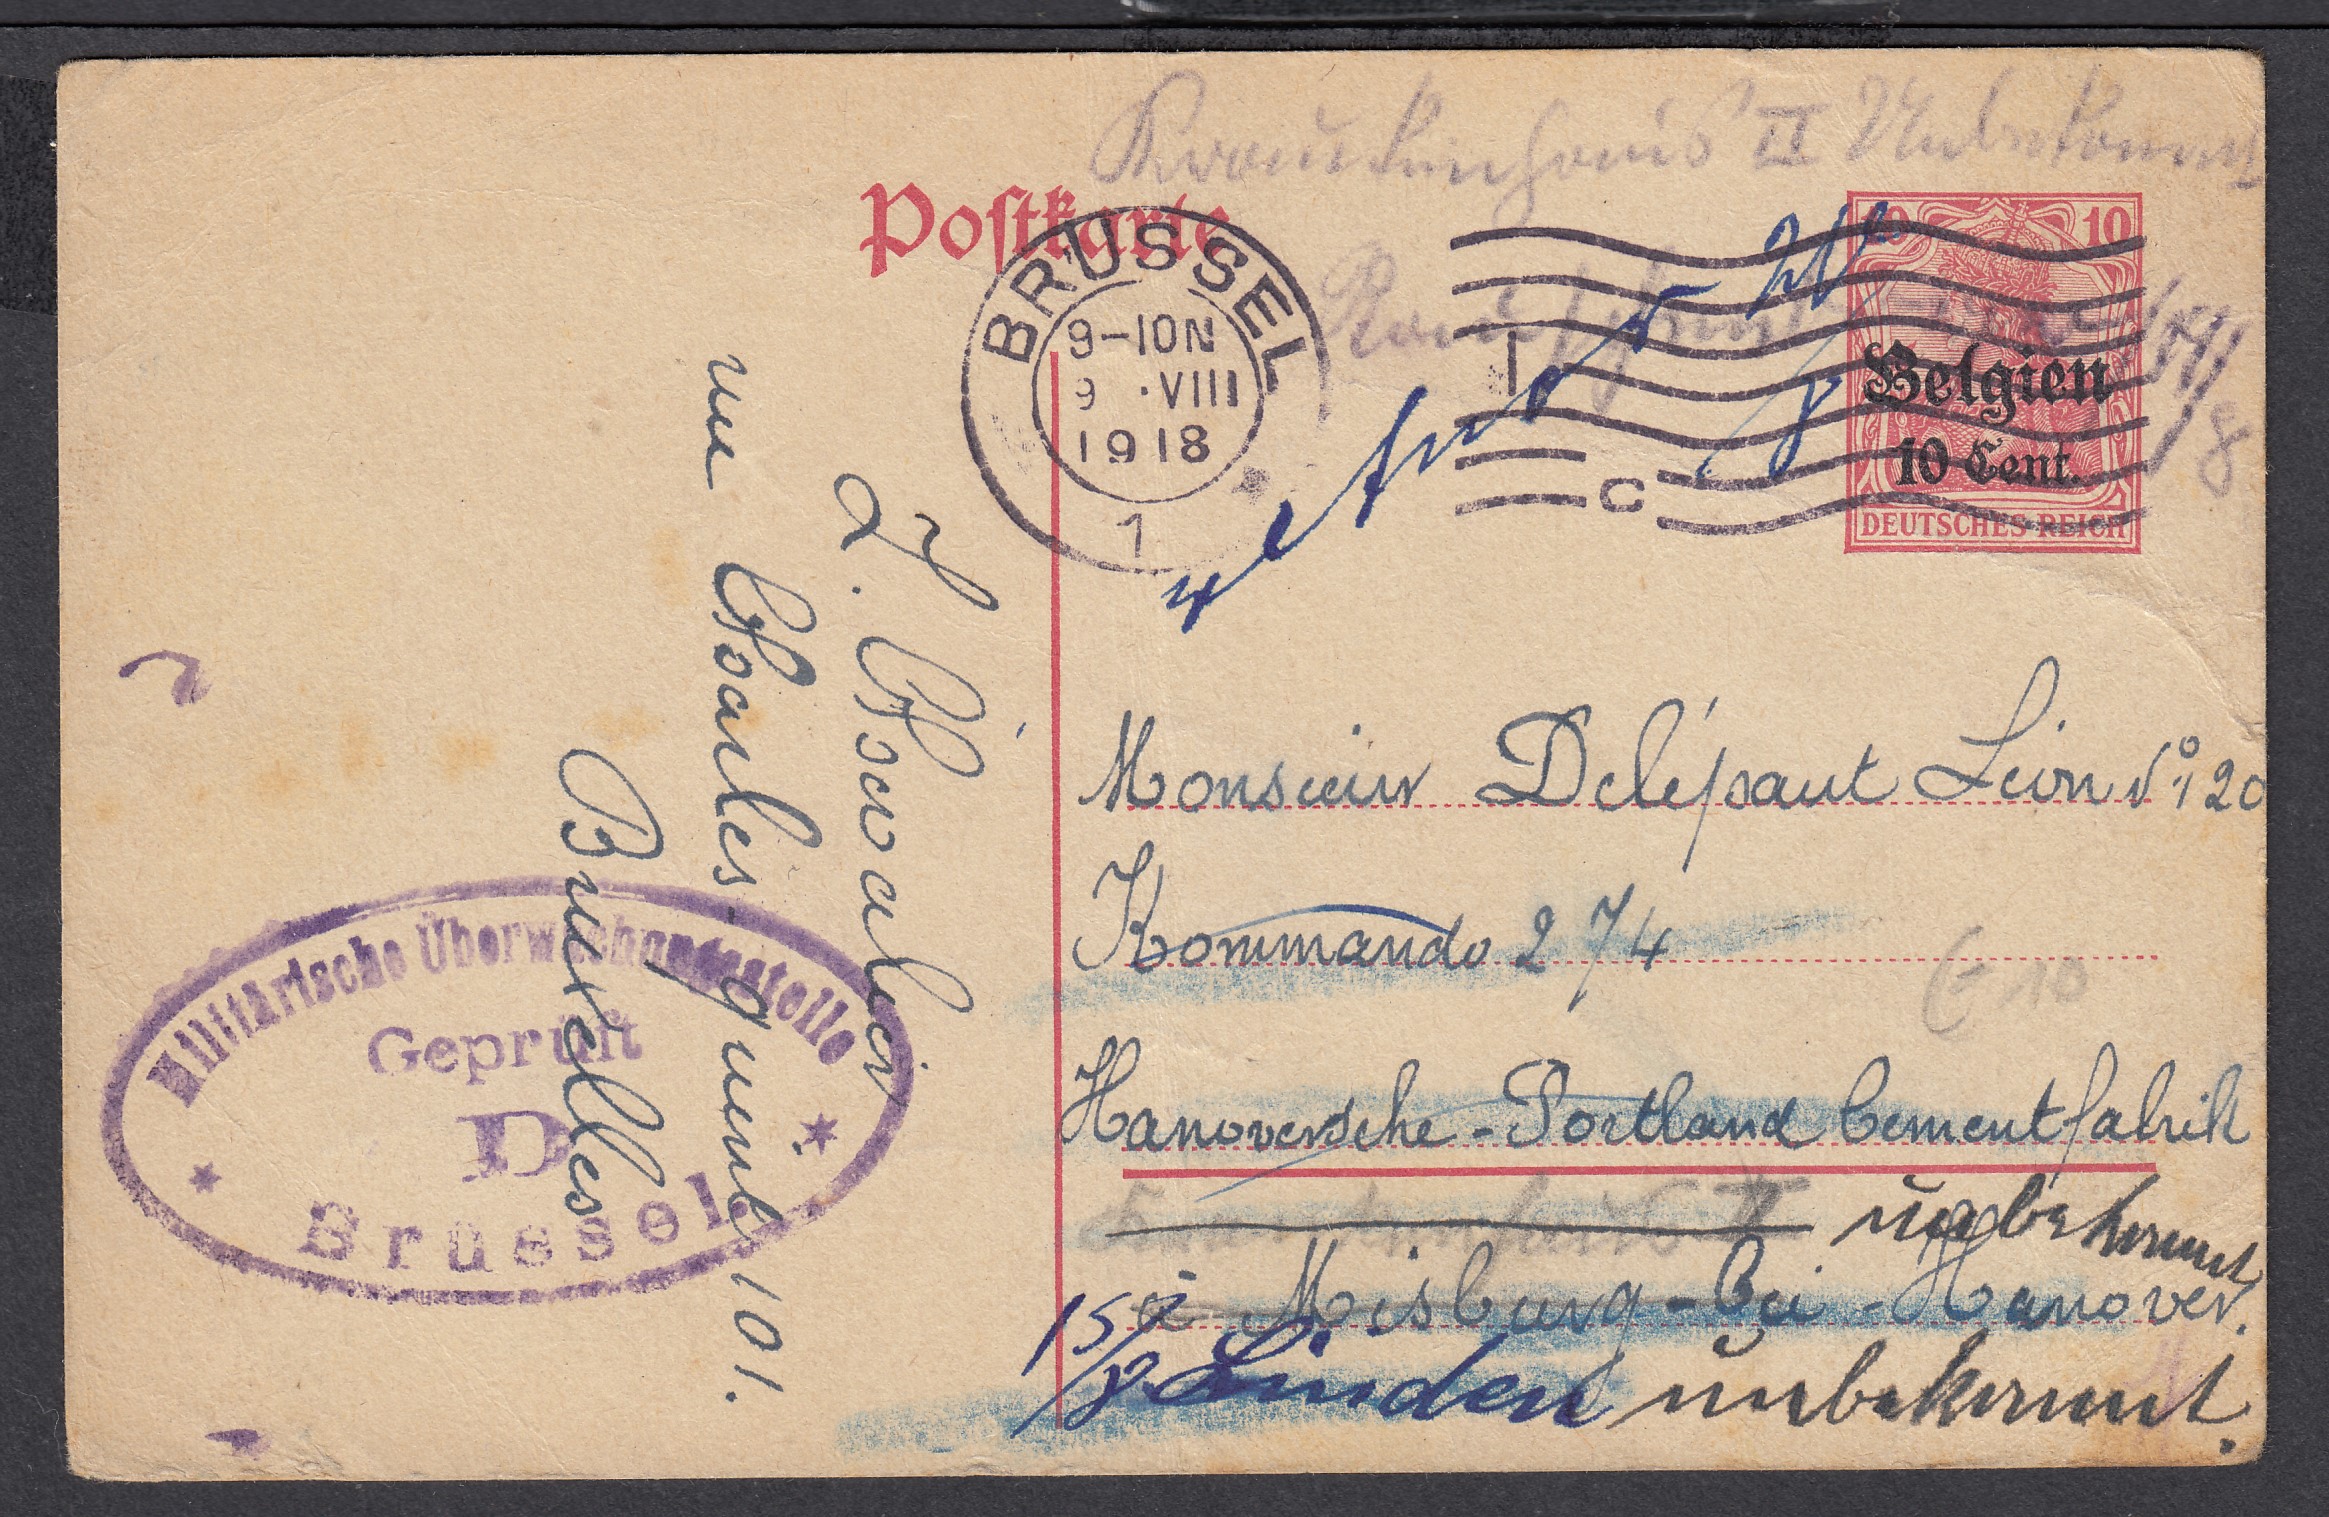 Krankenhaus II Unbekannt
Postkarte
BRÜSSEL
9-10N
9 .VIII
1918
1
C
10 10
Belgien
10 Cent.
DEUTSCHES REICH
retour
Monsieur Delépaut Léon N° 120
Kommando 274
Hanoversche - Portland Cementfabrik
unbekannt
à Misburg - bei - Hanover.
15/8 Linden unbekannt.
E 10
rue Charles-quint 101.
Bruxelles
Militärische Überwachungsstelle
Geprüft
D
Brüssel